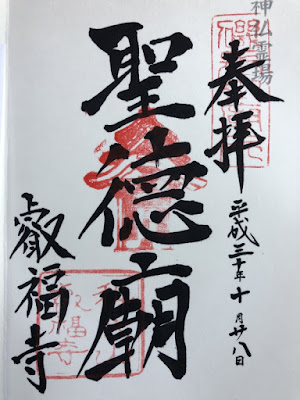 神仏霊場
奉拝
平成三十年十月廿八日
聖徳廟
叡福寺